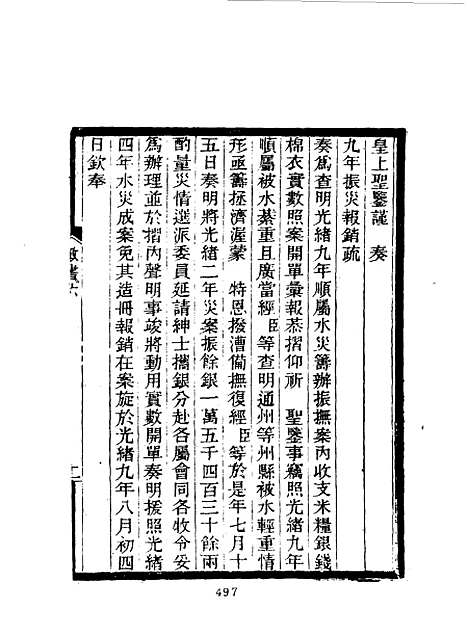 皇上聖鑒謹　奏
九年振災報銷疏
奏爲查明光緒九年順屬水災籌辦振撫案內收支米糧銀錢
棉衣實數照案開單彙報恭摺仰祈　聖鑒事竊照光緒九年
順屬被水綦重且廣當經臣等查明通州等州縣被水輕重情
形亟籌拯濟渥蒙　特恩撥漕備撫復經臣等於是年七月十
五日奏明將光緒二年災案振餘銀一萬五千四百三十餘兩
酌量災情選派委員延請紳士攜銀分赴各屬會同各牧令妥
爲辦理並於摺內聲明事竣將動用實數開單奏明援照光緒
四年水災成案免其造冊報銷在案旋於光緒九年八月初四
日欽奉
497